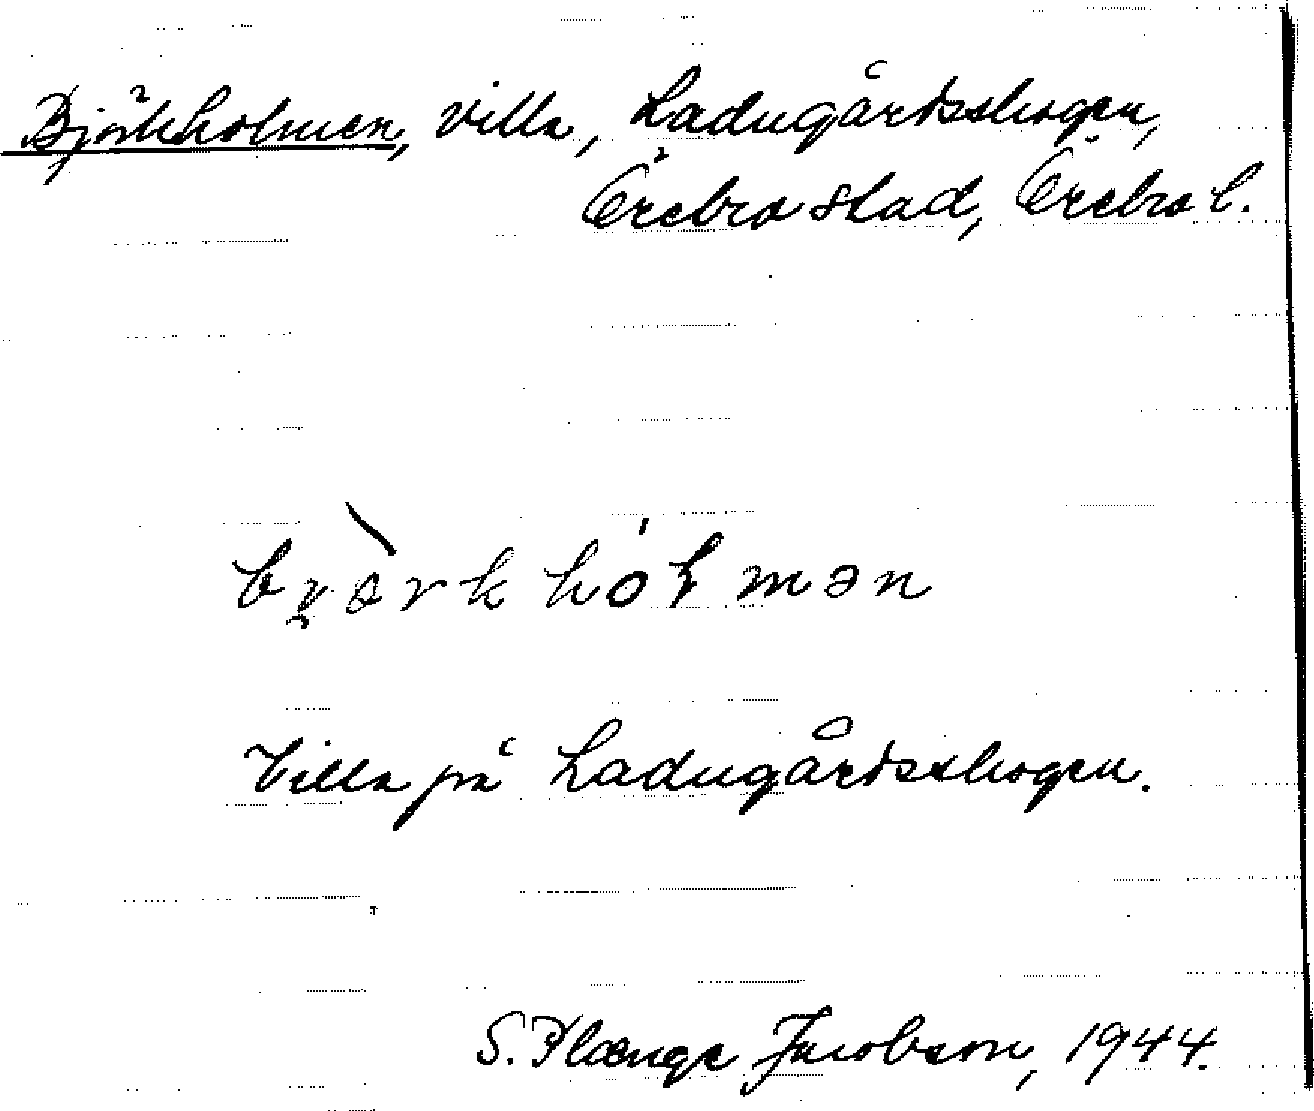 Björkholmen, villa, Ladugårdsskogen,
Örebro stad, Örebro l.
Villa på Ladugårdsskogen.
S. Plænge Jacobson, 1944.